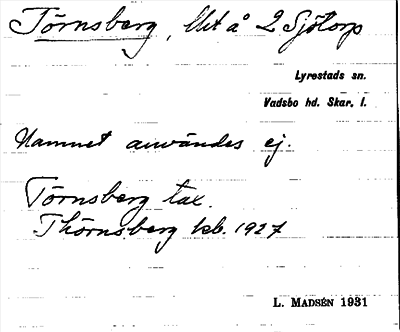 Törnsberg, Ut å 2 Sjötorp
Lyrestads sn.
Vadsbo hd. Skar. l.
Namnet användes ej.
Törnsberg tax.
Thörnsberg kb. 1927
L. MADSÉN 1931